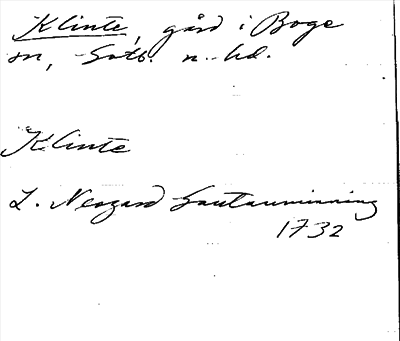 Klinte, gård i Boge
sn, Gotl. n. hd.
Klinte
L. Neogard Gautauminning
1732